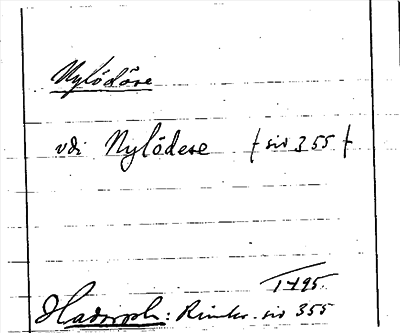 Nylödöse
vdi Nylödese ( siv 355 )
1795.
Hadorph: Rimkr. siv 355